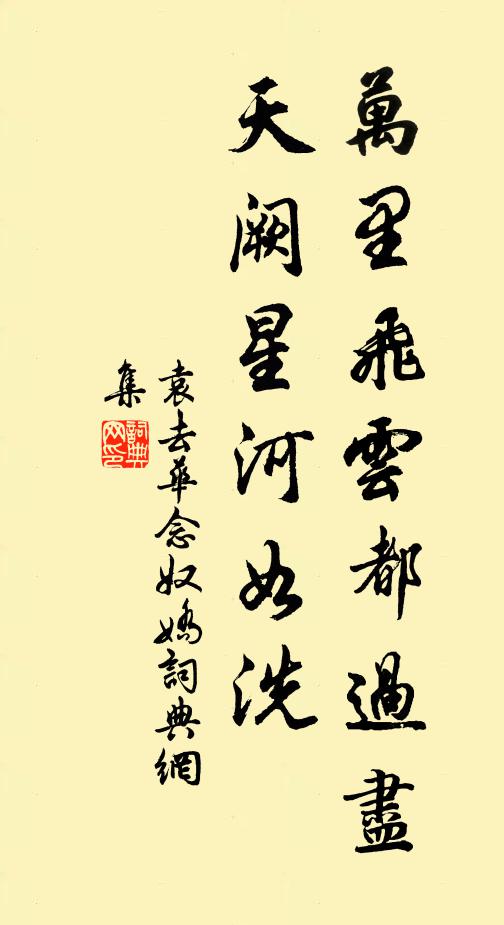 萬里飛雲都過盡
天闕星河如洗
袁去華念奴嬌詞典網
集
詞典网印